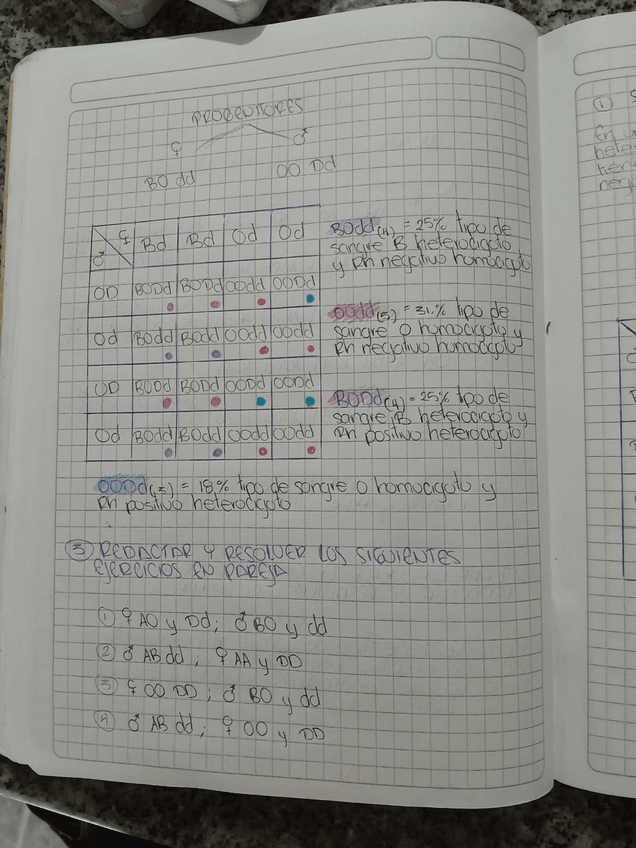 PROGENITORES
♀ ♂
BO dd OO Dd
♂ ♀ Bd Bd Od Od
OD BODd BODd OOdd OODd
Od BOdd BOdd OOdd OOdd
OD BODd BODd OODd OODd
Od BOdd BOdd OOdd OOdd
BOdd(4) = 25% tipo de
sangre B heterocigoto
y Rh negativo homocigoto
OOdd(5) = 31.% tipo de
sangre O homocigoto y
Rh negativo homocigoto
BODd(4) = 25% tipo de
sangre B heterocigoto y
Rh positivo heterocigoto
OODd(3) = 18% tipo de sangre O homocigoto y
Rh positivo heterocigoto
③ REDACTAR Y RESOLVER LOS SIGUIENTES
EJERCICIOS EN PAREJA
① ♀ AO y Dd; ♂ BO y dd
② ♂ AB dd; ♀ AA y DD
③ ♀ OO DD; ♂ BO y dd
④ ♂ AB dd; ♀ OO y DD
①
En y